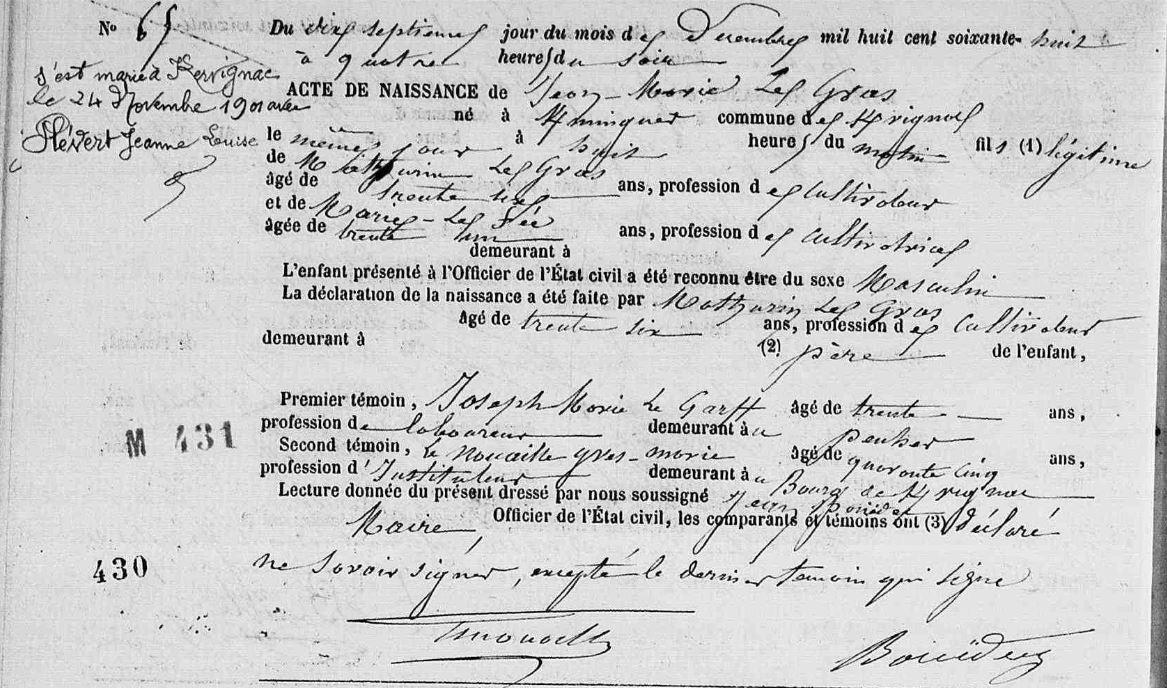 No 65 Du dix septieme jour du mois de Décembre mil huit cent soixante-huit
à quatre heures du soir
s'est marié à Kervignac
le 24 Novembre 1901 avec
Plévert Jeanne Louise
ACTE DE NAISSANCE de Jean-Marie Le Gras
né à commune de Krvignac
le même jour à huit heures du matin fils (1) légitime
de Mathurin Le Gras
âgé de trente six ans, profession de Cultivateur
et de Marie- Le Fée
âgée de trente un ans, profession de cultivatrice
demeurant à
L'enfant présenté à l'Officier de l'État civil a été reconnu être du sexe Masculin
La déclaration de la naissance a été faite par Mathurin Le Gras
âgé de trente six ans, profession de Cultivateur
demeurant à (2) père de l'enfant,
Premier témoin, Joseph Marie Le Garff âgé de trente ans,
profession de laboureur demeurant à
Second témoin, Le Nouaille yves-marie âgé de quarante cinq ans,
profession d'Instituteur demeurant au Bourg de Krvignac
Lecture donnée du présent dressé par nous soussigné Jean
Maire, Officier de l'État civil, les comparants et témoins ont (3) déclaré
ne savoir signer, excepté le dernier témoin qui signe
M 431
430